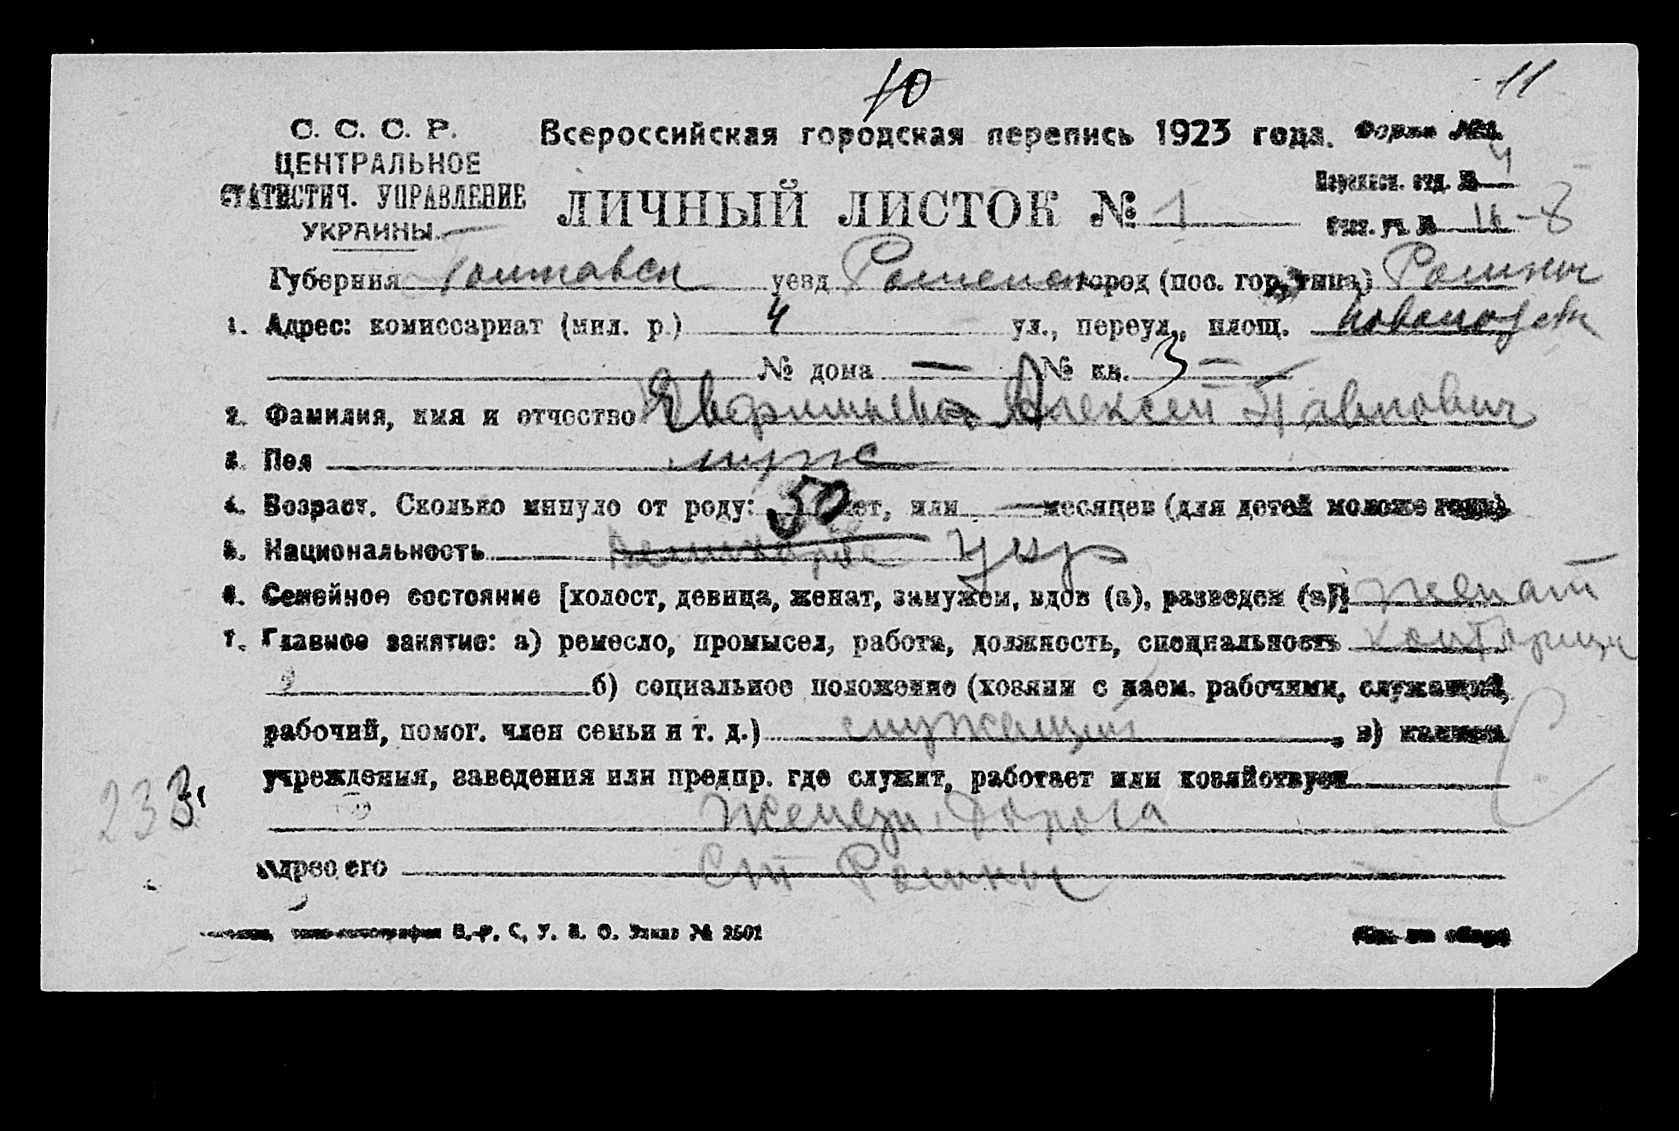 10
11
С. С. С. Р.
ЦЕНТРАЛЬНОЕ
СТАТИСТИЧ. УПРАВЛЕНИЕ
УКРАИНЫ.
Всероссийская городская перепись 1923 года. Форма
4
ЛИЧНЫЙ ЛИСТОК № 1
Переписн. отд. №
уч. № 16-8
Губерния Полтавск уезд Роменск город (пос. гор. типа) Ромны
1. Адрес: комиссариат (мил. р.) 4 ул., переул., площ.
№ дома — № кв. 3 —
2. Фамилия, имя и отчество Алексей Павлович
3. Пол муж
4. Возраст. Сколько минуло от роду: 50 лет, или — месяцев (для детей моложе года)
5. Национальность укр
6. Семейное состояние [холост, девица, женат, замужем, вдов (а), разведен (а)] женат
7. Главное занятие: а) ремесло, промысел, работа, должность, специальность конторщик
б) социальное положение (хозяин с наем. рабочими, служащий,
рабочий, помог. член семьи и т. д.) служащий, в)
учреждения, заведения или предпр. где служит, работает или хозяйствует
233
Железн. дорога
Адрес его Ст Ромны
В.-Р. С. У. В. О. Заказ № 2501